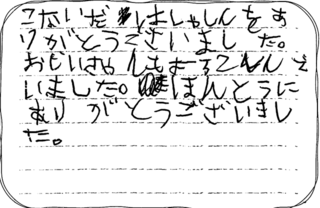 こないだはしゃしんをあ
りがとうございました。
おじいちゃんもよろこんで
いました。ほんとうに
ありがとうございまし
た。